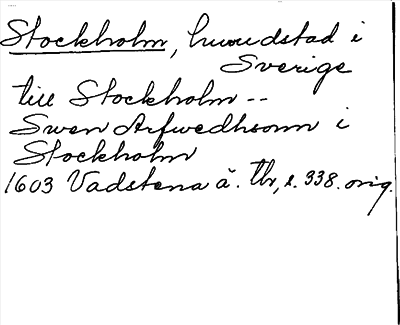 Stockholm, huvudstad i
Sverige
till Stockholm --
Swen Arfwedhsonn i
Stockholm
1603 Vadstena ä. Tb, s. 338. orig.